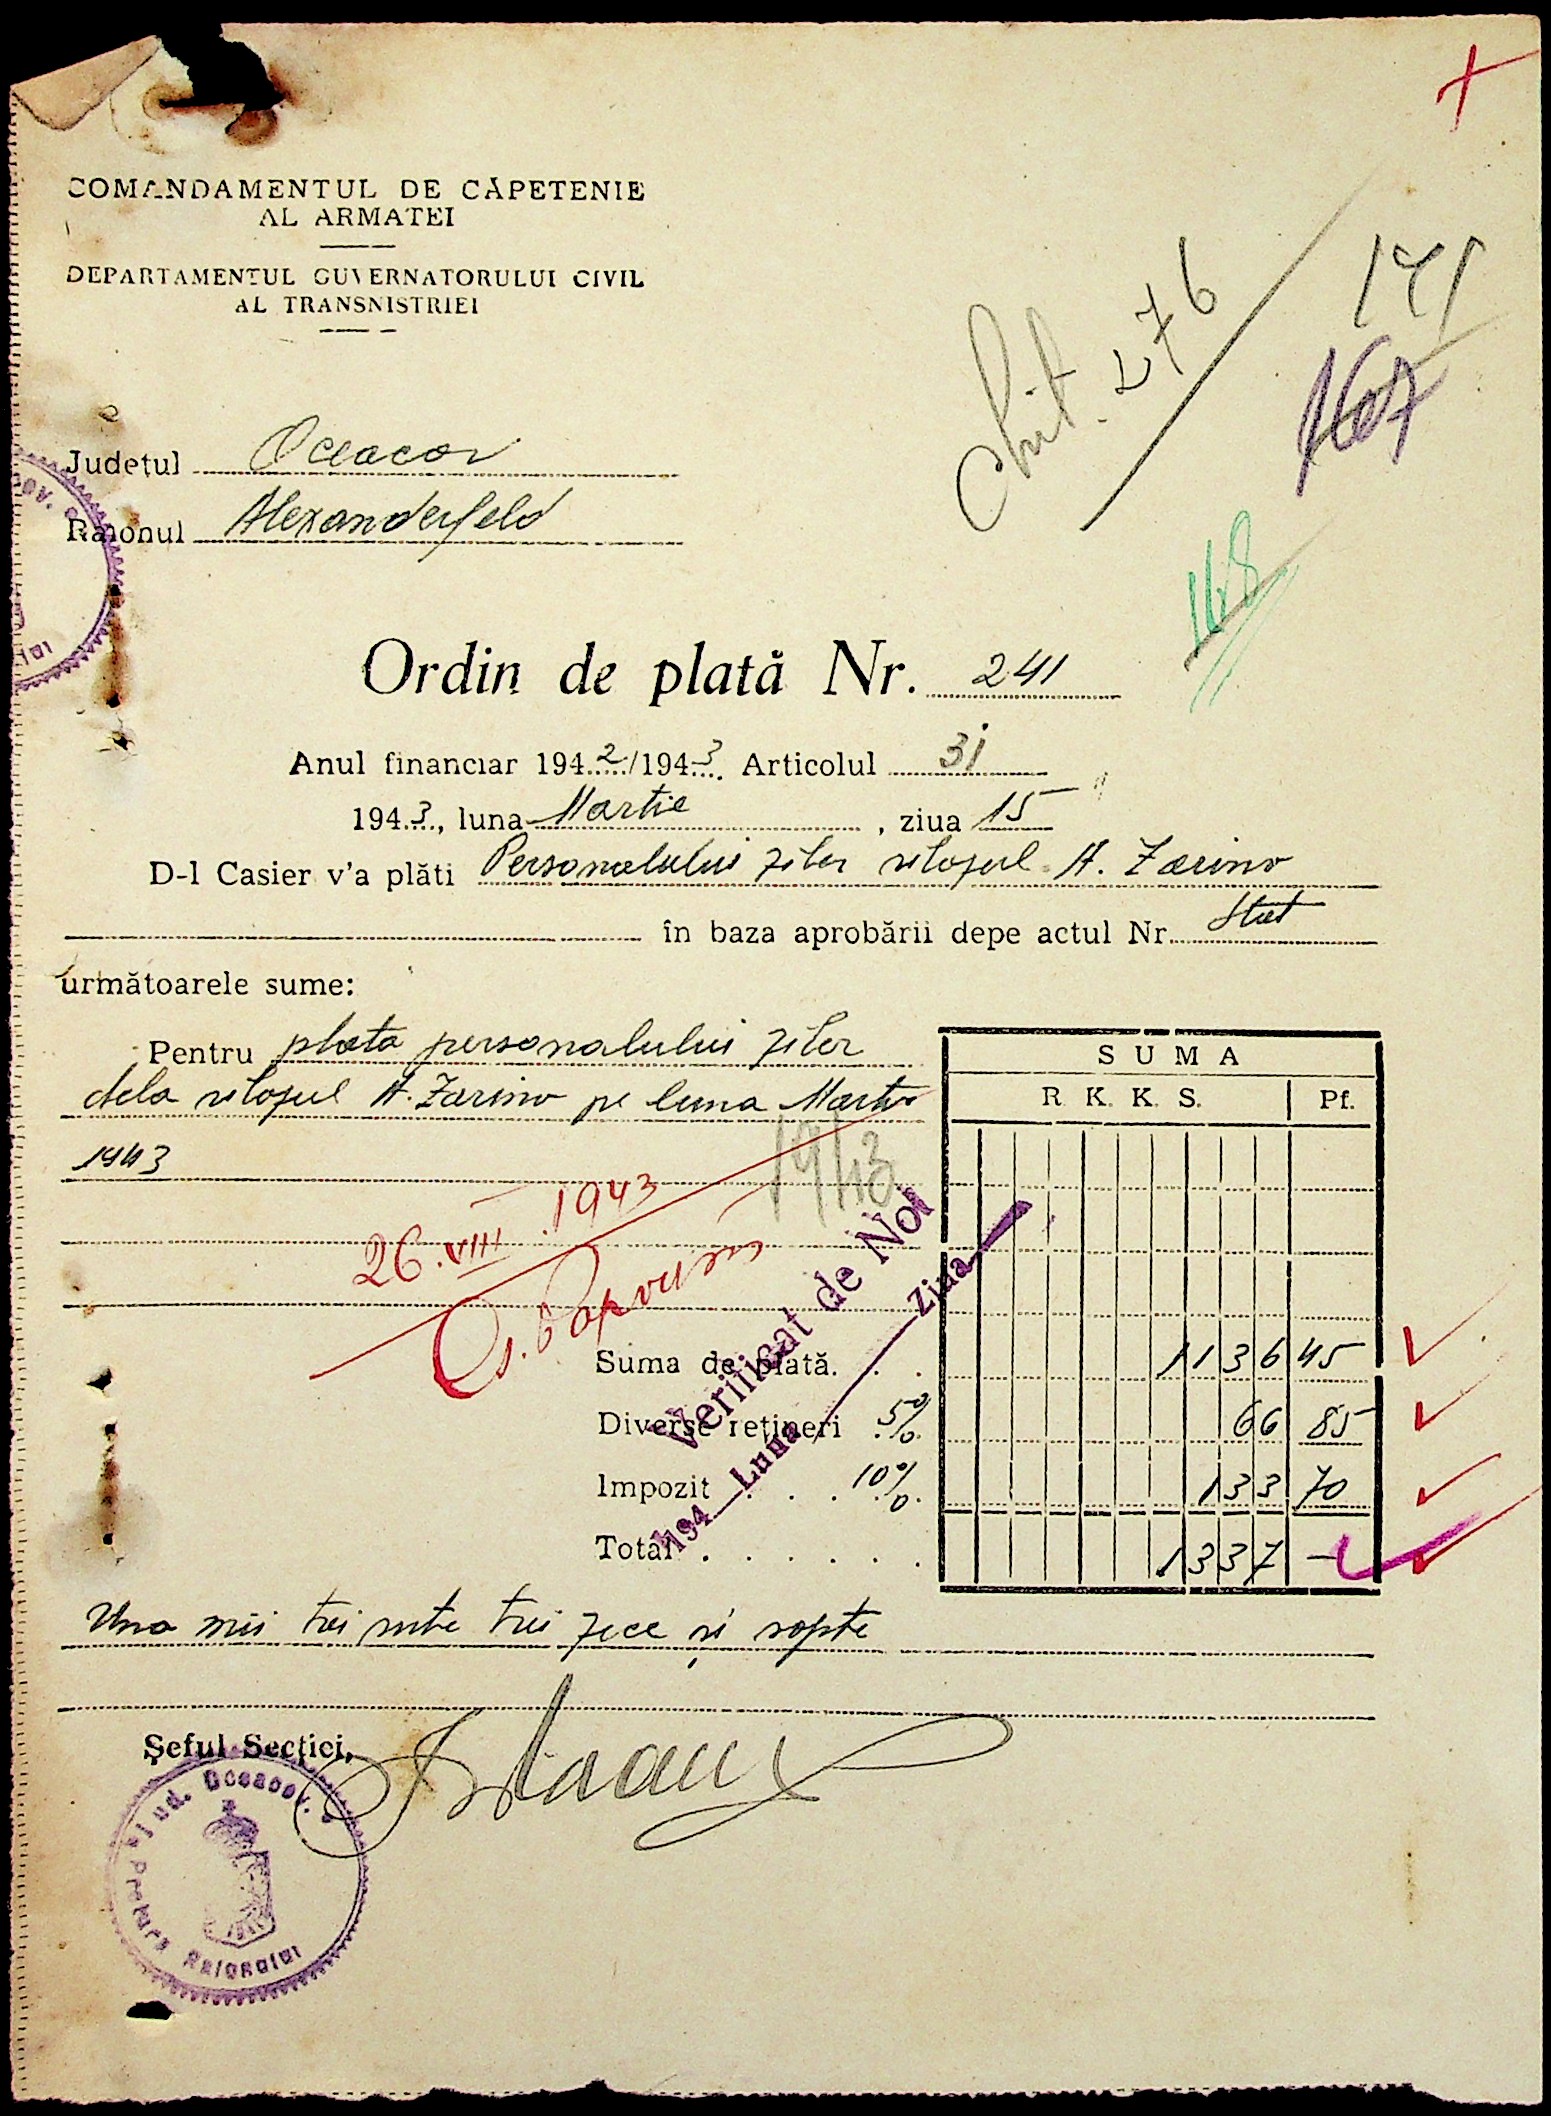 COMANDAMENTUL DE CĂPETENIE
AL ARMATEI
DEPARTAMENTUL GUVERNATORULUI CIVIL
AL TRANSNISTRIEI
Chit. 276
171
167
168
Județul Oceacov
Raionul Alexanderfeld
Ordin de plată Nr. 241
Anul financiar 1942/1943. Articolul 31
1943., luna Martie, ziua 15
D-l Casier v'a plăti Personalului ziler silozul A. Zarino
în baza aprobării depe actul Nr. Stat
următoarele sume:
Pentru plata personalului ziler
dela silozul A. Zarino pe luna Martie
1943
1943
26.VIII.1943
Verificat de Noi
194 Luna Ziua
SUMA
R. K. K. S. Pf.
Suma de plată. . . 1136 45
Diverse rețineri 5% 66 85
Impozit . . . 10% 133 70
Total . . . . . . 1337 —
Una mii trei sute trei zece si sapte
Șeful Secției,
Jud. Oceacov.
Pretura Raionului